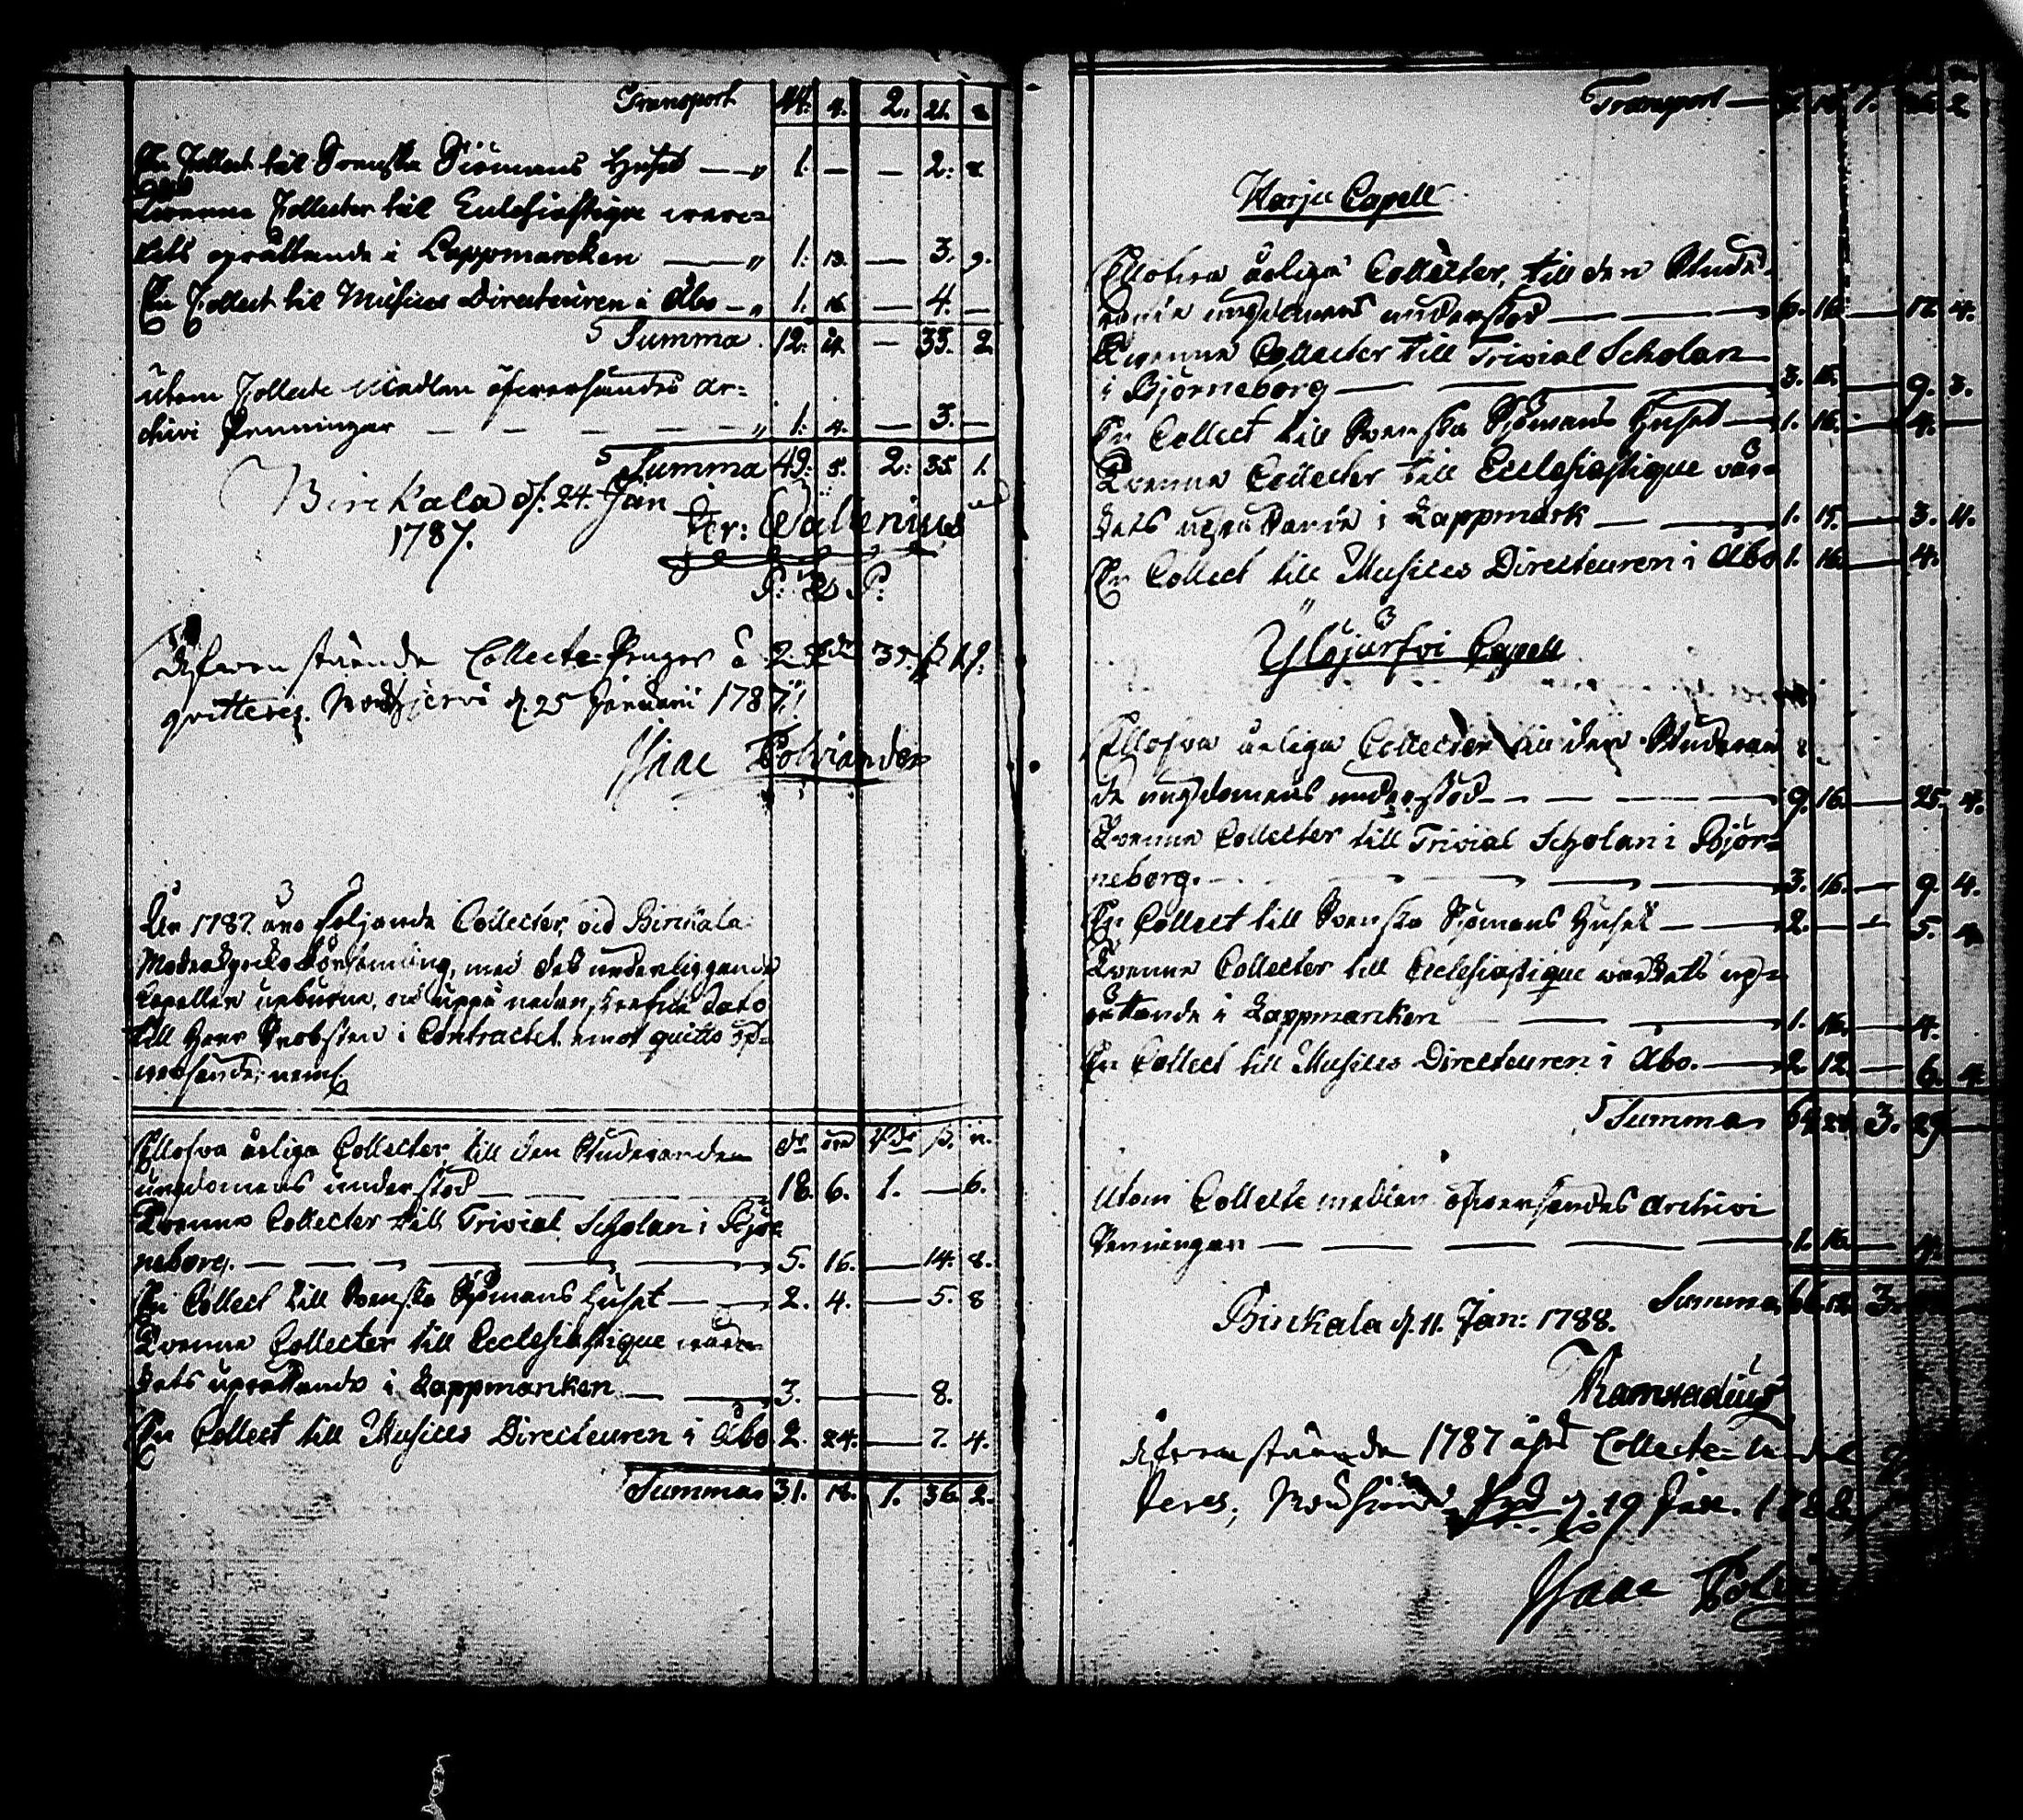 Transport 44. 4. 2. 21. 2
En Collect till Svenska Siömans Huset — " 1. — — 2. 2
Tvenne Collecter till Ecclesiastique wär=
kets oprättande i Lappmarcken — " 1. 13. — 3. 9.
En Collect til Musices Directeuren i Åbo — " 1. 16. — 4. —
Summa 12. 4. — 35. 2.
utom Collecte Medlen öfversändes Ar=
chivi Penningar — — — — — " 1. 4. — 3. —
Summa 49. 5. 2. 35. 1.
Birckala d. 24. Jan
1787. Gr: Wallenius
P. &
Ofvanstående Collecte-Penger à 2 Rdr 35
qvitteres. d. 25 Januarii 1787.
Isaac Polviander
År 1787. äro följande Collecter, vid Birckala
Moderkyrko Församling, med dess underliggande
Capeller upburne, och uppå nedanskrefne dato
till Herr Probsten i Contractet emot quitto öf=
versände; neml.
dr öre Rdr ß. r.
Ellofva årliga Collecter, till den Studerande
ungdomens understöd — — — 18. 6. 1. — 6.
Tvenne Collecter till Trivial Scholan i Björ=
neborg. — — — — — 5. 16. — 14. 8.
En Collect till Svenska Sjömans Huset — — 2. 4. — 5. 8
Tvenne Collecter till Ecclesiastique wär=
kets uprättande i Lappmarken — — 3. — — 8.
En Collect till Musices Directeuren i Åbo 2. 24. — 7. 4.
Summa 31. 18. 1. 36. 2.
Transport — 1. 36. 2
Harju Capell
Ellofva årliga Collecter, till den Stude=
rande ungdomens understöd — — — 6. 16. — 17. 4.
Tvenne Collecter till Trivial Scholan
i Björneborg — — — — 3. 15. — 9. 3.
En Collect till Svenska Sjömans Huset — 1. 16. — 4. —
Tvenne Collecter till Ecclesiastique vär=
kets uprättande i Lappmark — — 1. 15. — 3. 11.
En Collect till Musices Directeuren i Åbo 1. 16. — 4.
Ylöjärfvi Capell
Ellofva årliga Collecter till den Studeran
de ungdomens understöd — — — — 9. 16. — 25. 4.
Tvenne Collecter till Trivial Scholan i Björ=
neborg. — — — — 3. 16. — 9. 4.
En Collect till Svenska Sjömans Huset — — 2. — — 5. 4
Tvenne Collecter till Ecclesiastique wärkets up=
rättande i Lappmarken — — 1. 16. — 4.
En Collect till Musices Directeuren i Åbo. — 2. 12. — 6. 4
Summa 3. 29. —
Utom Collecte medlen öfversändes Archivi
Penningar — — — — 1. 16. — 4. —
Summa 3.
Birckala d. 11. Jan: 1788.
Ofvanstående 1787 års Collecte
teres, d. 19 Jan. 1788
Isaac